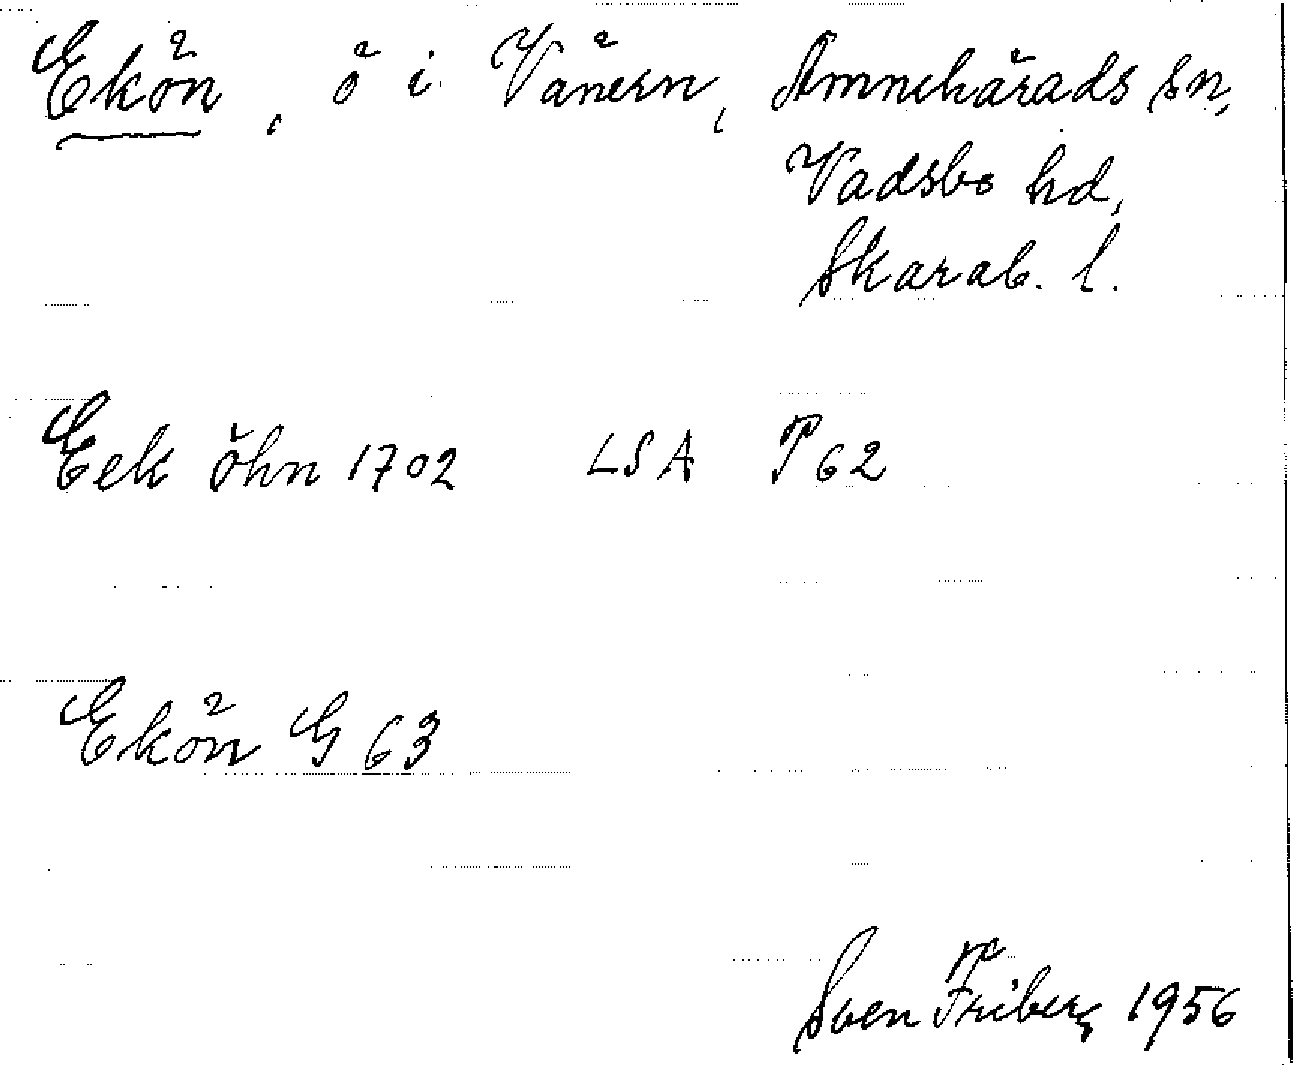 Ekön, ö i Vänern, Amnehärads sn,
Vadsbo hd,
Skarab. l.
Eek öhn 1702 LSA P 62
Ekön G 63
Sven Friberg 1956